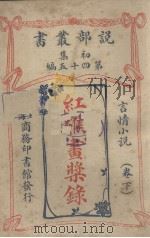 說部叢書
初集
第四十五編
言情小說
（卷下）
紅礁畫槳錄
上海
商務印書館發行